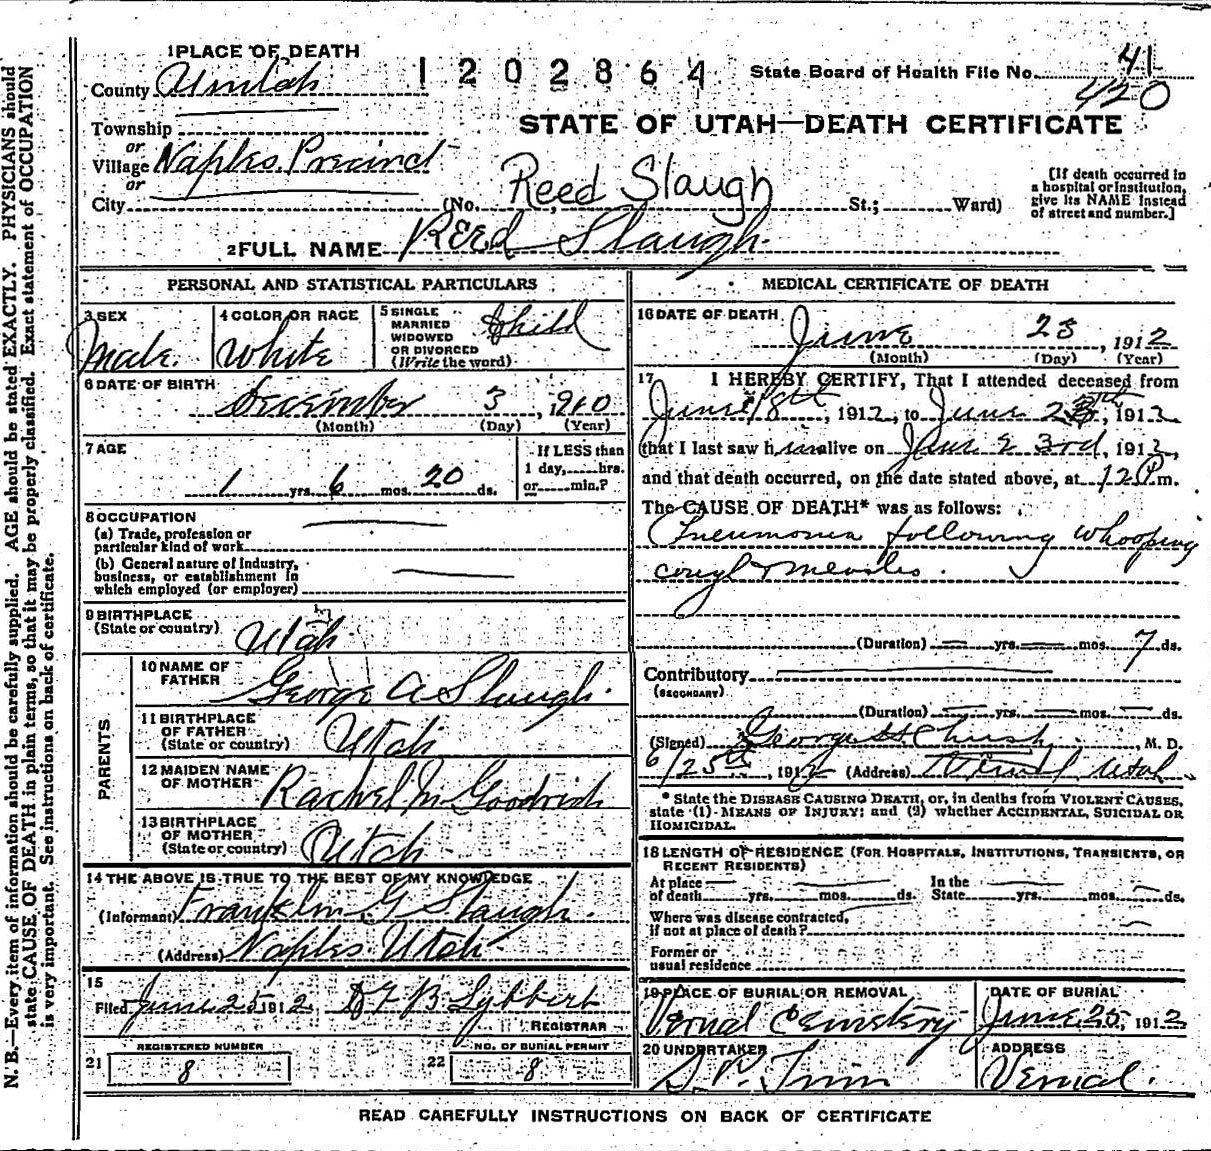 1 PLACE OF DEATH
County Uintah
1202864
State Board of Health File No. 41
420
Township
or
Village Naples Precinct
or
City (No. Reed Slaugh St.; Ward)
STATE OF UTAH—DEATH CERTIFICATE
[If death occurred in
a hospital or institution,
give its NAME instead
of street and number.]
2 FULL NAME Reed Slaugh.
PERSONAL AND STATISTICAL PARTICULARS
3 SEX
Male.
4 COLOR OR RACE
White
5 SINGLE
MARRIED
WIDOWED
OR DIVORCED
(Write the word)
Child
6 DATE OF BIRTH
December 3, 1910
(Month) (Day) (Year)
7 AGE
1 yrs. 6 mos. 20 ds.
If LESS than
1 day, hrs.
or min.?
8 OCCUPATION
(a) Trade, profession or
particular kind of work
(b) General nature of Industry,
business, or establishment in
which employed (or employer)
9 BIRTHPLACE
(State or country)
Utah
PARENTS
10 NAME OF
FATHER
George A Slaugh.
11 BIRTHPLACE
OF FATHER
(State or country)
Utah
12 MAIDEN NAME
OF MOTHER
Rachel M Goodrich
13 BIRTHPLACE
OF MOTHER
(State or country)
Utah
14 THE ABOVE IS TRUE TO THE BEST OF MY KNOWLEDGE
(Informant) Franklin G Slaugh.
(Address) Naples Utah
15
Filed June 25 1912 B Lybbert
REGISTRAR
REGISTERED NUMBER
21 8
NO. OF BURIAL PERMIT
22 8
MEDICAL CERTIFICATE OF DEATH
16 DATE OF DEATH
June 23, 1912
(Month) (Day) (Year)
17 I HEREBY CERTIFY, That I attended deceased from
June 18th, 1912, to June 23rd, 1912,
that I last saw him alive on June 23rd, 1912,
and that death occurred, on the date stated above, at 12 P.m.
The CAUSE OF DEATH* was as follows:
Pneumonia following whooping
cough & measles.
(Duration) yrs. mos. 7 ds.
Contributory
(SECONDARY)
(Duration) yrs. mos. ds.
(Signed) George H , M. D.
6/25th, 1912 (Address) Vernal Utah
* State the DISEASE CAUSING DEATH, or, in deaths from VIOLENT CAUSES,
state (1) MEANS OF INJURY; and (2) whether ACCIDENTAL, SUICIDAL OR
HOMICIDAL.
18 LENGTH OF RESIDENCE (FOR HOSPITALS, INSTITUTIONS, TRANSIENTS, OR
RECENT RESIDENTS)
At place
of death yrs. mos. ds.
In the
State yrs. mos. ds.
Where was disease contracted,
if not at place of death?
Former or
usual residence
19 PLACE OF BURIAL OR REMOVAL
Vernal Cemetery
DATE OF BURIAL
June 25, 1912
20 UNDERTAKER
ADDRESS
Vernal.
READ CAREFULLY INSTRUCTIONS ON BACK OF CERTIFICATE
N. B.—Every item of information should be carefully supplied. AGE should be stated EXACTLY. PHYSICIANS should
state CAUSE OF DEATH in plain terms, so that it may be properly classified. Exact statement of OCCUPATION
is very important. See instructions on back of certificate.